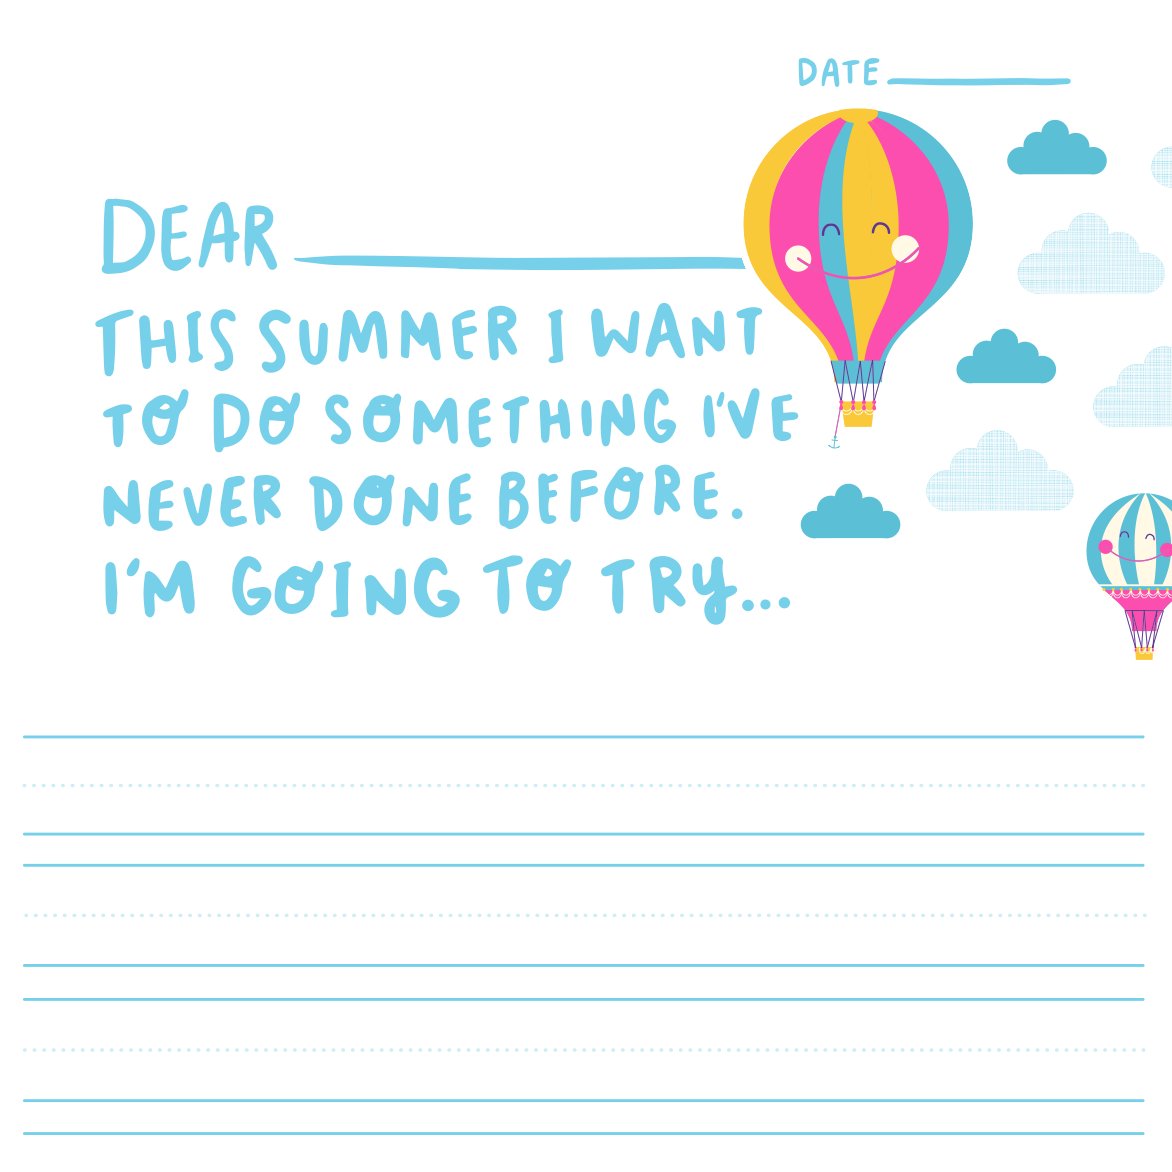 DATE
DEAR
THIS SUMMER I WANT
TO DO SOMETHING I'VE
NEVER DONE BEFORE.
I'M GOING TO TRY...